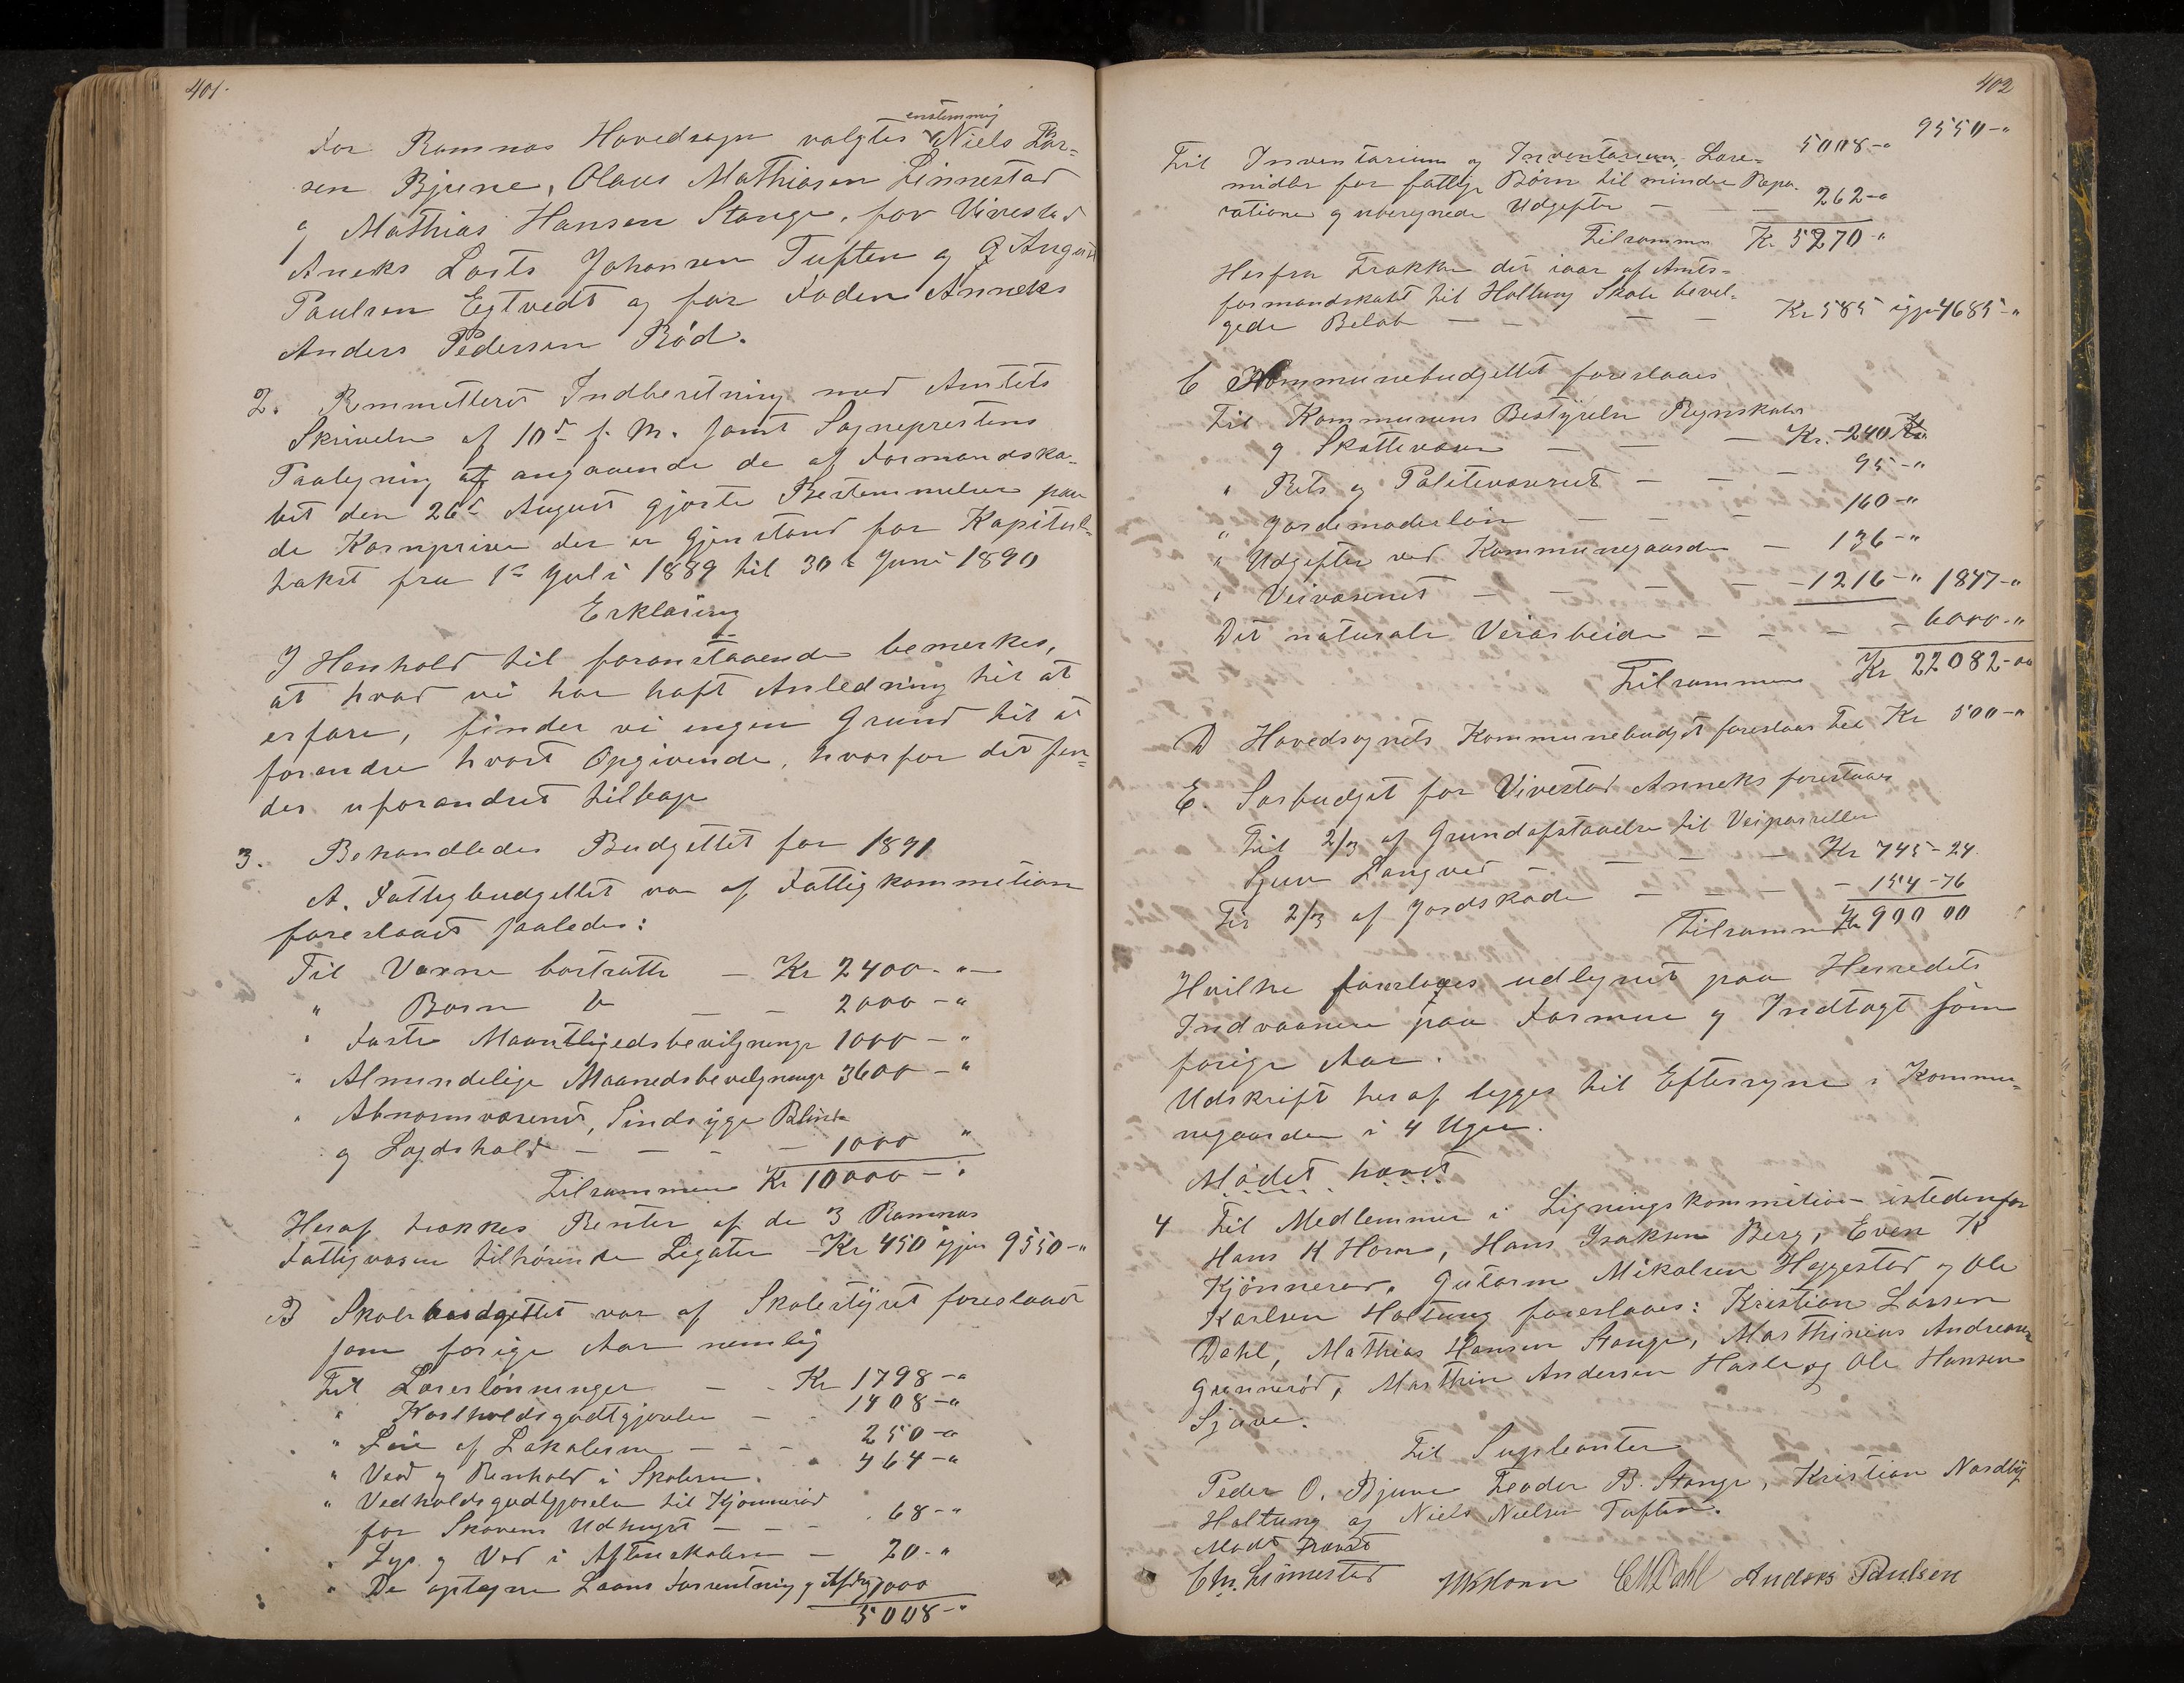 401.
For Ramnæs Hovedsogn valgtes enstemmig Niels Lar-
sen Bjune, Olaus Mathiasen Linnestad
og Mathias Hansen Stange, for Vivestad
Aneks Lars Johansen Tuften og August
Paulsen Egtvedt og for Foden Anneks
Anders Pedersen Röd.
2. Remmitteret Indberetning med Amtets
Skrivelse af 10de f. M. samt Sogneprestens
Paategning angaaende de af Formandska-
bet den 26de August gjorte Bestemmelser paa
de Kornpriser der er Gjenstand for Kapitels-
takst fra 1ste Juli 1889 til 30te Juni 1890
Erklæring
I Henhold til foranstaaende bemerkes,
at hvad vi har haft Anledning til at
erfare, finder vi ingen Grund til at
forandre hvert Opgivende, hvorfor det sen-
des uforandret tilbage
3. Behandledes Budgettet for 1891
A. Fattigbudgettet var af Fattigkommitionen
foreslaaet saaledes:
Til Voxne bortsatte — Kr 2400 - " -
" Børn D — — 2000 - "
" Faste Maanedsbevilgninger 1000 - "
" Almindelige Maanedsbevilgninger 3600 - "
" Abnormvæsenet, Sindsyge Blinde
og Lægdshold — — — 1000 "
Tilsammen Kr 10000 - "
Heraf trækkes Renter af de 3 Ramnæs
Fattigvæsen tilhørende Legater - Kr 450 igjen 9550 - "
B Skolebudgettet var af Skolestyret foreslaaet
som forige Aar nemlig
Til Lærerlönninger — - Kr 1798 - "
" Kostholdsgodtgjørelse — - 1408 - "
" Leie af Lokalerne — - — 250 - "
" Ved og Renhold i Skolerne. 464 - "
" Vedholdsgodtgjørelse til Kjønnerød
for Skovens Udhugst — — - 68 - "
" Lys og Ved i Aftenskolerne — 20 - "
" De optagne Laans Forrentning og Afdrag 1000
5008 - "
402
9550 - "
5008 - "
Til Inventarium og Inventarium, Lære-
midler for fattige Børn til mindre Repa-
rationer og uberegnede Udgifter — — 262 - "
Tilsammen Kr 5270 - "
Herfra Trækkes det iaar af Amts-
formandskabet til Holtung Skole bevil-
gede Beløb — — — — Kr 585 igjen 4685 - "
C Kommunebudgettet foreslaaes
Til Kommunens Bestyrelse Regnskabs
og Skattevæsen — — — Kr. 240
" Rets og Politivæsenet — — — 95 - "
" Jordemoderlön — — — 160 - "
" Udgifter ved Kommunegaarden — 136 - "
" Veivæsenet — — — — 1216 - " 1847 - "
Det naturale Veiarbeide — — — — 6000 - "
Tilsammen Kr 22082 - 00
D Hovedsognets Kommunebudget foreslaaes til Kr 500 - "
E. Særbudget for Vivestad Anneks foreslaaes
Til 2/3 af Grundafstaaelse til Veiparsellen
Sjue Langved — — — — Kr 745 - 24
Til 2/3 af Jordskade — — — — 154 - 76
Tilsammen Kr 900 00
Hvilke foreslaaes udlignet paa Herredets
Indvaanere paa Formue og Indtægt som
forige Aar.
Udskrift heraf lægges til Eftersyn i Kommu-
negaarden i 4 Uger.
Mødet hævet
4 Til Medlemmer i Ligningskommition istedenfor
Hans K Horn, Hans Isaksen Berg, Even K
Kjönnerød, Gutorm Mikalsen Heggestad og Ole
Karlsen Holtung foreslaaes: Kristian Larsen
Dahl, Mathias Hansen Stange, Marthinius Andreas
Grennerød, Marthin Andersen Hasle og Ole Hansen
Sjue.
Til Supleanter
Peder O. Bjune Teodor B. Stange, Kristian Nordby
Holtung og Niels Nielsen Tuften.
Mødet hævet
Chr. Linnestad HKHorn CMDahl Anders Paulsen